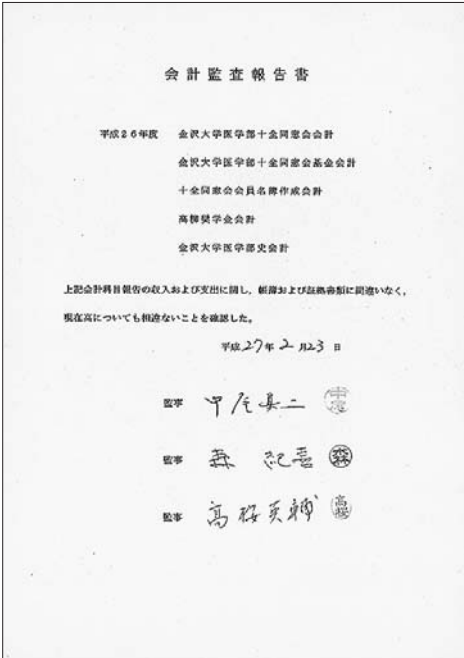 会計監査報告書
平成26年度 金沢大学医学部十全同窓会会計
金沢大学医学部十全同窓会基金会計
十全同窓会会員名簿作成会計
高柳奨学金会計
金沢大学医学部史会計
上記会計科目報告の収入および支出に関し、帳簿および証拠書類に間違いなく、
現在高についても相違ないことを確認した。
平成27年2月23日
監事 中屋真二
監事 森 紀喜 森
監事 高桜英輔 高桜